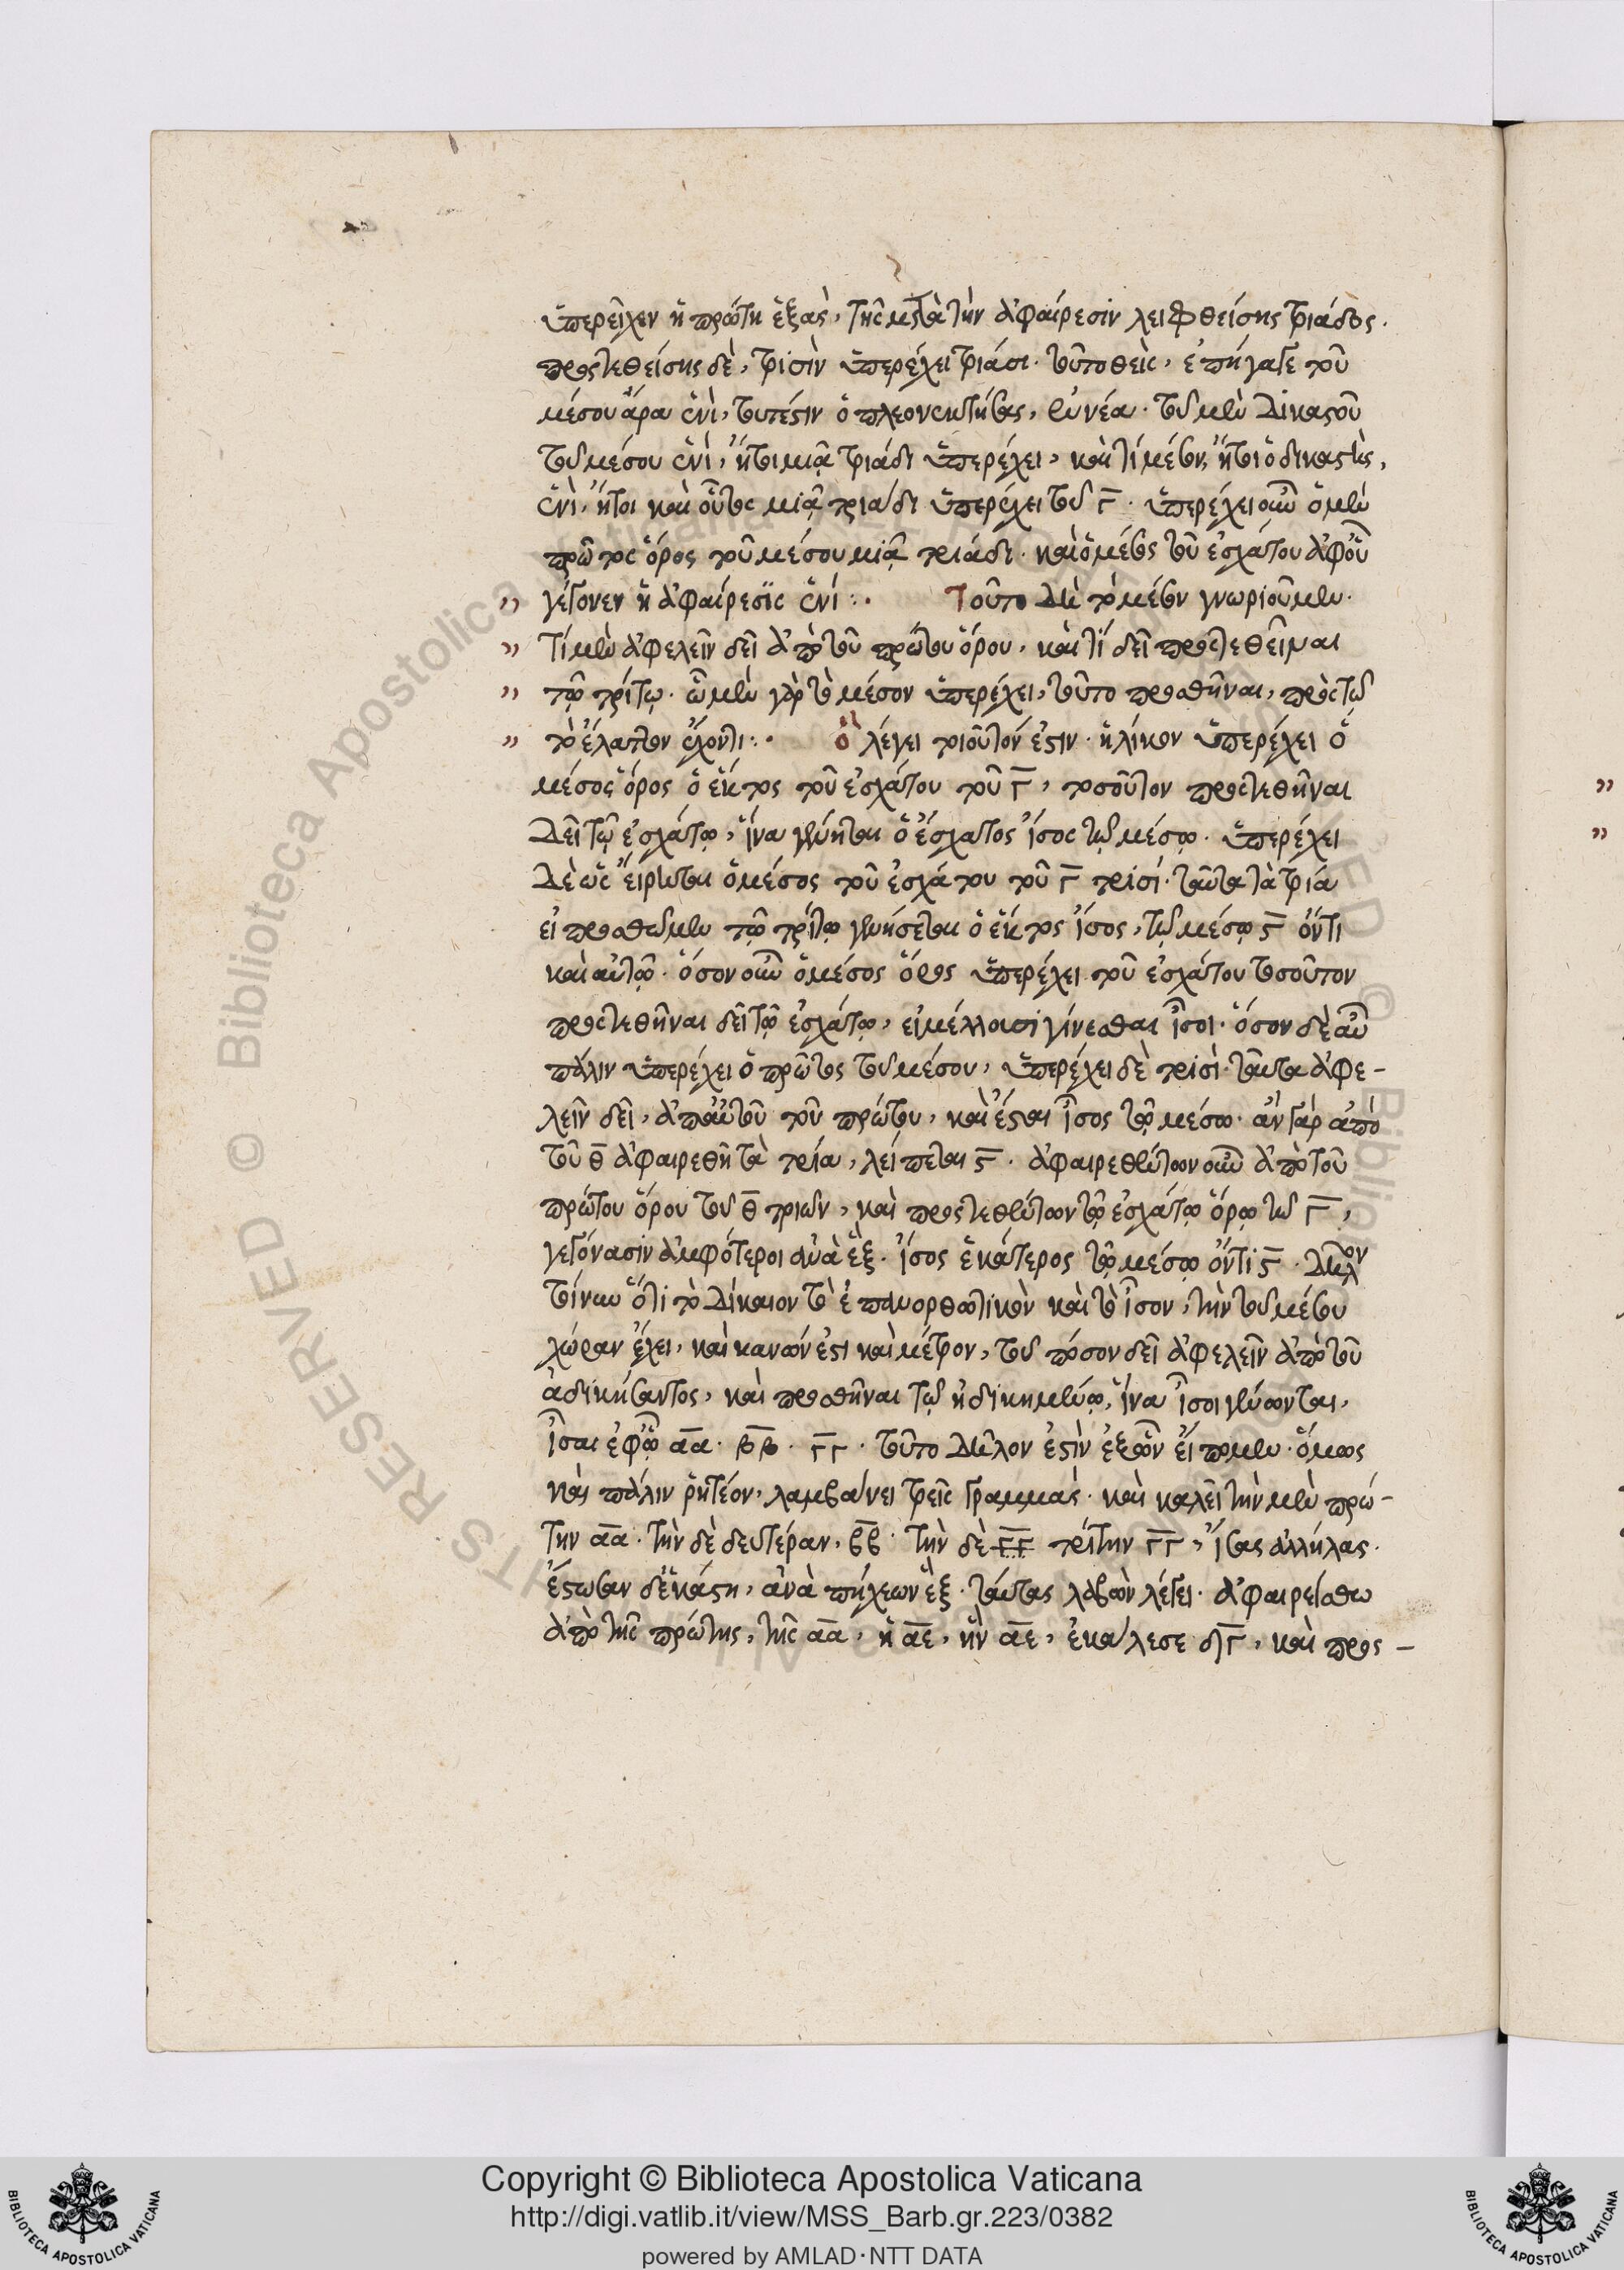 ὑπερεῖχεν ἡ πρώτη ἑξὰς, τῆς μετὰ τὴν ἀφαίρεσιν λειφθείσης τριάδος.
προςτεθείσης δὲ, τρισὶν ὑπερέχει τριάσι. τοῦτο θεὶς, ἐπήγαγε τοῦ
μέσου ἄρα ἑνὶ, τουτέστιν ὁ πλεονεκτήσας, ἐννέα. τοῦ μὲν δικαστοῦ
τοῦ μέσου ἑνὶ, ἤτοι μιᾷ τριάδι ὑπερέχει, καὶ τὸ μέσον, ἤτοι ὁ δικαστὴς,
ἑνὶ, ἤτοι καὶ οὗτος μιᾷ τριάδι ὑπερέχει τοῦ γ̅. ὑπερέχει οὖν ὁ μὲν
πρῶτος ὅρος τοῦ μέσου μιᾷ τριάδι. καὶ ὁ μέσος τοῦ ἐσχάτου ἀφ' οὗ
γέγονεν ἡ ἀφαίρεσις ἑνί :. Τοῦτο δὴ τὸ μέσον γνωριοῦμεν.
τί μὲν ἀφελεῖν δεῖ ἀπὸ τοῦ πρώτου ὅρου, καὶ τί δεῖ προςτεθεῖναι
τῷ τρίτῳ. ᾧ μὲν γὰρ τὸ μέσον ὑπερέχει, τοῦτο προσθῆναι, πρὸς τῷ
τὸ ἔλαττον ἔχοντι :. ὃ λέγει τοιοῦτόν ἐστιν. ἡλίκον ὑπερέχει ὁ
μέσος ὅρος ὁ ἕκτος τοῦ ἐσχάτου τοῦ γ̅, τοσοῦτον προςτεθῆναι
δεῖ τῷ ἐσχάτῳ, ἵνα γένηται ὁ ἔσχατος ἴσος τῷ μέσῳ. ὑπερέχει
δὲ ὡς εἴρηται ὁ μέσος τοῦ ἐσχάτου τοῦ γ̅ τρισί. ταῦτα τὰ τρία
εἰ προσθῶμεν τῷ τρίτῳ γενήσεται ὁ ἕκτος ἴσος, τῷ μέσῳ ϛ̅ ὄντι
καὶ αὐτῷ. ὅσον οὖν ὁ μέσος ὅρος ὑπερέχει τοῦ ἐσχάτου τοσοῦτον
προςτεθῆναι δεῖ τῷ ἐσχάτῳ, εἰ μέλλοισι γίνεσθαι ἶσοι. ὅσον δὲ αὖ
πάλιν ὑπερέχει ὁ πρῶτος τοῦ μέσου, ὑπερέχει δὲ τρισὶ. ταῦτα ἀφε-
λεῖν δεῖ, ἀπ' αὐτοῦ τοῦ πρώτου, καὶ ἔσται ἶσος τῷ μέσῳ. ἂν γὰρ ἀπὸ
τοῦ θ̅ ἀφαιρεθῇ τὰ τρία, λείπεται ϛ̅. ἀφαιρεθέντων οὖν ἀπὸ τοῦ
πρώτου ὅρου τοῦ θ̅ τριῶν, καὶ προςτεθέντων τῷ ἐσχάτῳ ὅρῳ τῷ γ̅,
γεγόνασιν ἀμφότεροι ἀνὰ ἓξ. ἴσος ἑκάτερος τῷ μέσῳ ὄντι ϛ̅. δῆλον
τοίνυν ὅτι τὸ δίκαιον τὸ ἐπανορθωτικὸν καὶ τὸ ἶσον, τὴν τοῦ μέσου
χώραν ἔχει, καὶ κανών ἐστι καὶ μέτρον, τοῦ πόσον δεῖ ἀφελεῖν ἀπὸ τοῦ
ἀδικήσαντος, καὶ προσθῆναι τῷ ἠδικημένῳ, ἵνα ἶσοι γένωνται,
ἶσαι ἐφ' ᾧ α̅α̅. β̅β̅. γ̅γ̅. τοῦτο δῆλον ἐστὶν ἐξ ὧν εἴπομεν. ὅμως
καὶ πάλιν ῥητέον, λαμβάνει τρεῖς γραμμὰς. καὶ καλεῖ τὴν μὲν πρώ-
την α̅α̅. τὴν δὲ δευτέραν, β̅β̅. τὴν δὲ γ̅γ̅ τρίτην γ̅γ̅, ἴσας ἀλλήλας.
ἔστωσαν δ' ἑκάστη, ἀνὰ πήχεων ἓξ. ταύτας λαβὼν λέγει. ἀφαιρείσθω
ἀπὸ τῆς πρώτης, τῆς α̅α̅, ἡ α̅ε̅, ἣν α̅ε̅, ἐκάλεσε δ̅γ̅, καὶ προς-
Copyright © Biblioteca Apostolica Vaticana
http://digi.vatlib.it/view/MSS_Barb.gr.223/0382
powered by AMLAD·NTT DATA